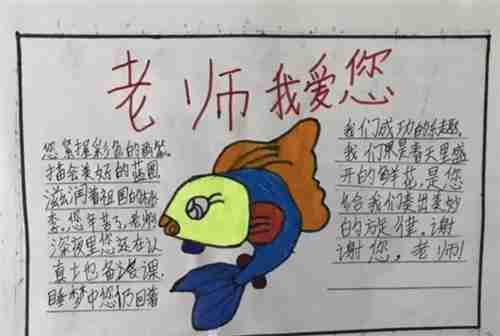 老师我爱您
您紧握彩色的画笔
描绘美好的蓝图
滋润着祖国的
季。您辛苦了,老师
深夜里您还在认
真地备课
睡梦中您仍回着
我们成功的乐趣
我们果是春天里盛
开的鲜花,是您
给我们奏出美妙
的旋律。谢
谢您,老师!